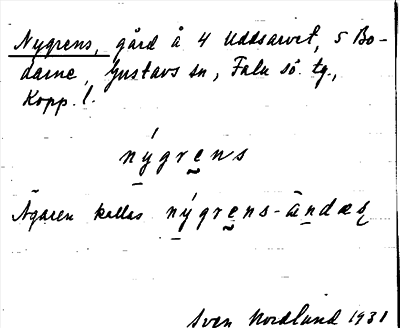 Nygrens, gård å 4 Uddsarvet, 5 Bo-
darne, Gustavs sn, Falu sö. tg.,
Kopp. l.
nýgrens
Ägaren kallas nýgrens-ándæȥ
Sven Nordlund 1931